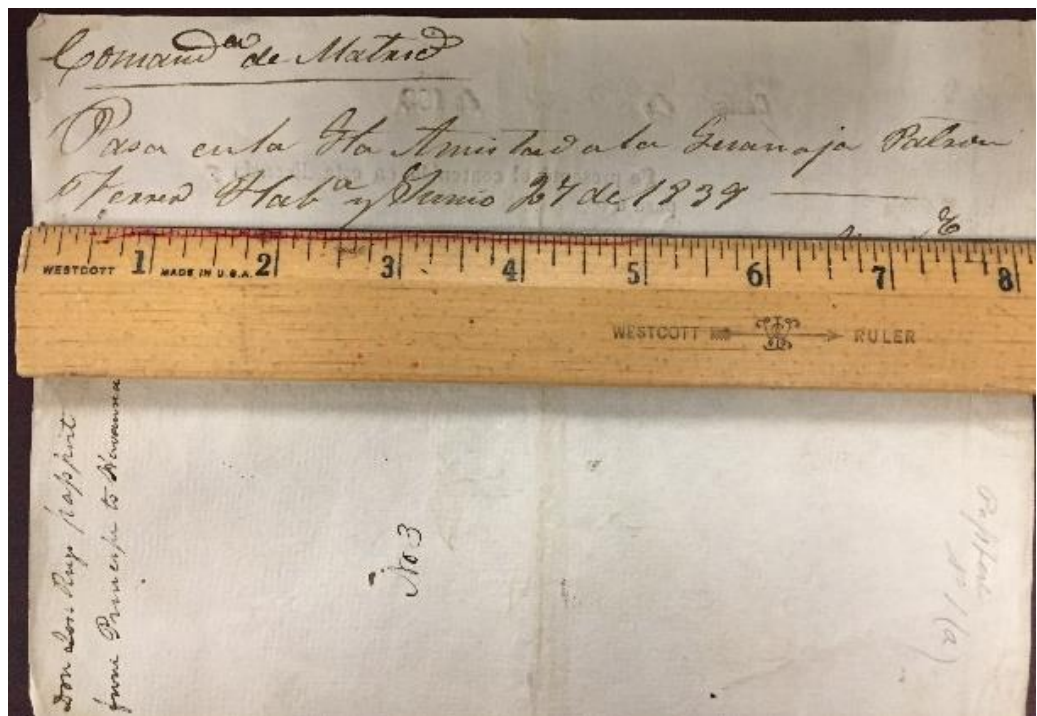 Comandª de Matricˢ
Pasa en la Gta Amistad a la Guanaja Patron
Ferrer Habª y Junio 27 de 1839
WESTCOTT 1 MADE IN U.S.A. 2 3 4 5 6 7 8
WESTCOTT RULER
Don Jose Ruys passport
from Principe to Havanna
No 3
1 (a)